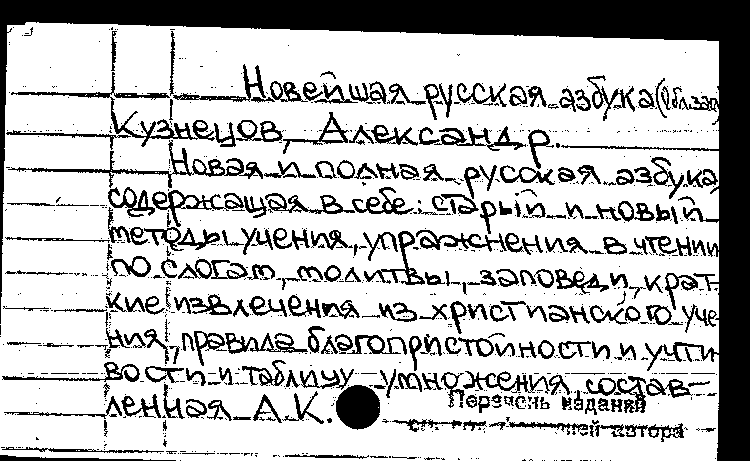 Новейшая русская азбука (Обл.заг
Кузнецов, Александр.
Новая и полная русская азбука,
содержащая в себе: старый и новый
методы учения, упражнения в чтении
по слогам, молитвы, заповеди, крат-
кие извлечения из христианского уче
ния, правила благопристойности и учти
вости и таблицу умножения, состав-
ленная А.К.
Перечень изданий
автора